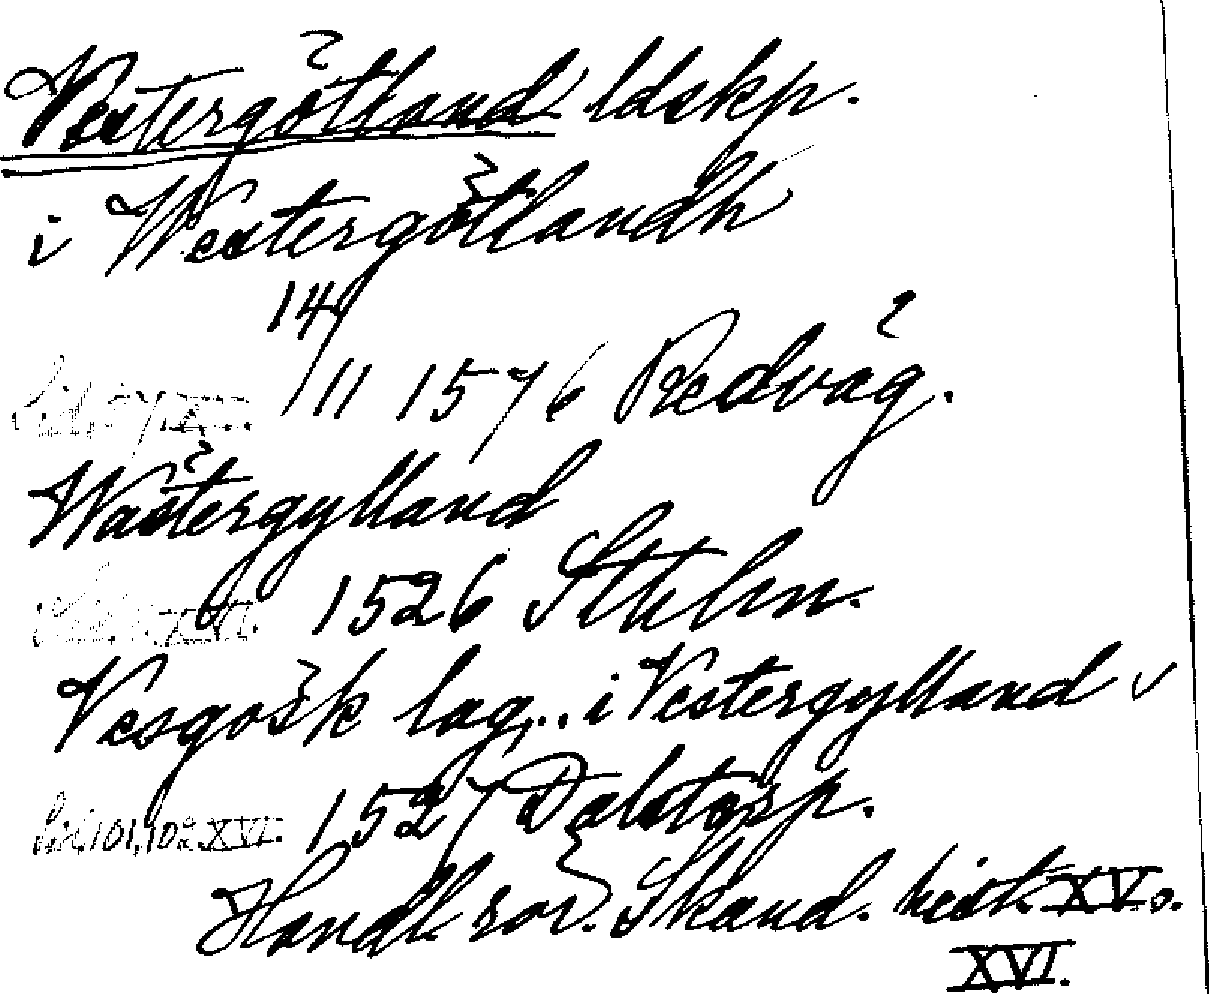 Vestergötland ldskp.
i Westergötlandh
14/11 1576 Redväg.
Wästergylland
1526 Sthlm.
Vesgösk lag,.. i Vestergylland
sid. 101, 102 XVI. 1527 Dalstorp.
Handl. rör. Skand. hist. XV o.
XVI.